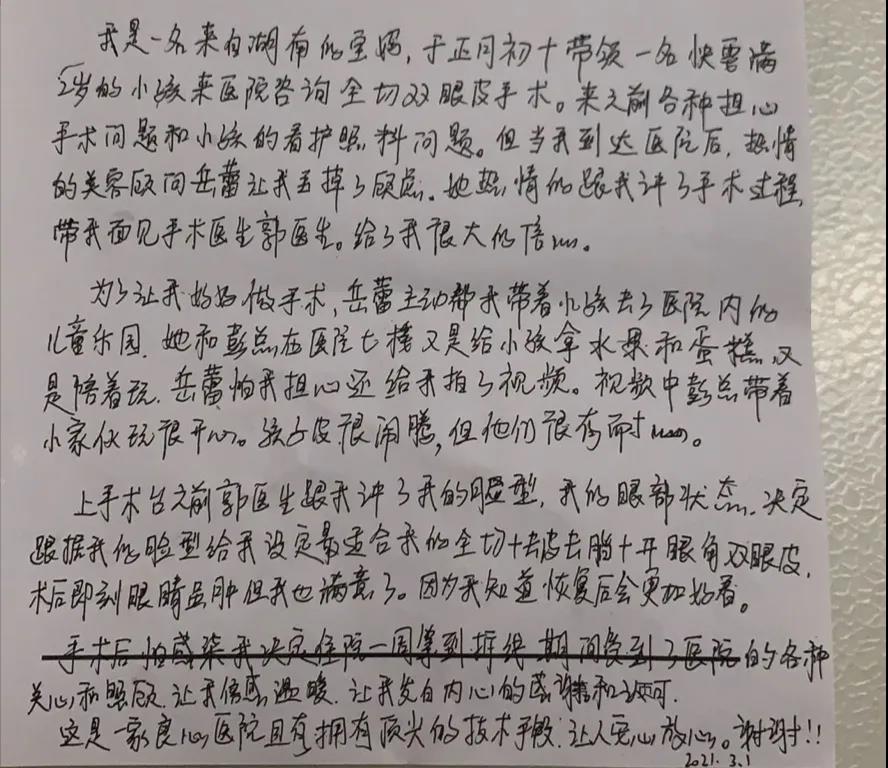 我是一名来自湖南的宝妈，于正月初十带领一名快要满
2岁的小孩来医院咨询全切双眼皮手术。来之前各种担心
手术问题和小孩的看护照料问题。但当我到达医院后，热情
的美容顾问岳蕾让我丢掉了顾虑。她热情的跟我讲了手术过程，
带我面见手术医生郭医生。给了我很大的信心。
为了让我好好做手术，岳蕾主动帮我带着小孩去了医院内的
儿童乐园，她和彭总在医院七楼又是给小孩拿水果和蛋糕又
是陪着玩，岳蕾怕我担心还给我拍了视频。视频中彭总带着
小家伙玩很开心。孩子皮很闹腾，但他们很有耐心。
上手术台之前郭医生跟我讲了我的脸型，我的眼部状态，决定
跟据我的脸型给我设定最适合我的全切+去皮去脂+开眼角双眼皮，
术后即刻眼睛虽肿但我也满意了。因为我知道恢复后会更加好看。
手术后怕感染我决定住院一周等到拆线期间受到了医院的各种
关心和照顾，让我倍感温暖，让我发自内心的感谢和认可，
这是一家良心医院且有拥有顶尖的技术手段，让人安心放心。谢谢!!
2021.3.1